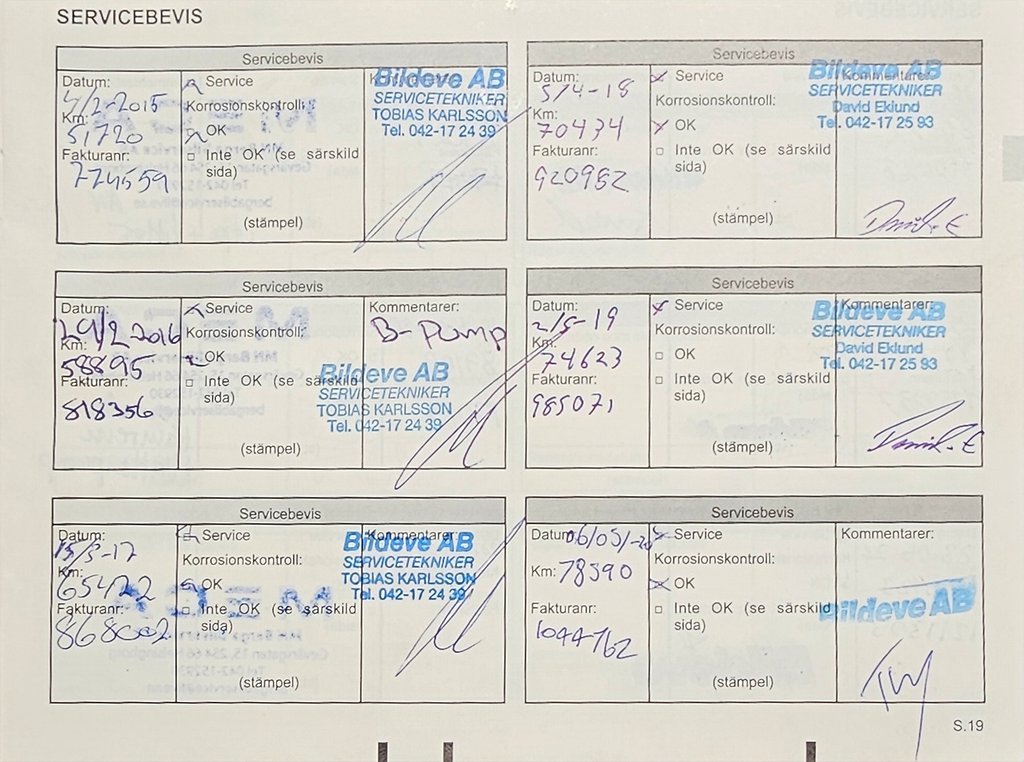 SERVICEBEVIS
Servicebevis
Datum: 4/2-2015
Km: 51720
Fakturanr: 774559
Service
Korrosionskontroll:
OK
Inte OK (se särskild
sida)
(stämpel)
Bildeve AB
SERVICETEKNIKER
TOBIAS KARLSSON
Tel. 042-17 24 39
Servicebevis
Datum: 5/4-18
Km: 70434
Fakturanr: 920952
Service
Korrosionskontroll:
OK
Inte OK (se särskild
sida)
(stämpel)
Kommentarer:
Bildeve AB
SERVICETEKNIKER
David Eklund
Tel. 042-17 25 93
David.E
Servicebevis
Datum: 29/2-2016
Km: 58895
Fakturanr: 818356
Service
Korrosionskontroll:
OK
Inte OK (se särskild
sida)
(stämpel)
Kommentarer:
B-Pump
Bildeve AB
SERVICETEKNIKER
TOBIAS KARLSSON
Tel. 042-17 24 39
Servicebevis
Datum: 2/5-19
Km: 74623
Fakturanr: 985071
Service
Korrosionskontroll:
OK
Inte OK (se särskild
sida)
(stämpel)
Kommentarer:
Bildeve AB
SERVICETEKNIKER
David Eklund
Tel. 042-17 25 93
David.E
Servicebevis
Datum: 13/3-17
Km: 65422
Fakturanr: 868002
Service
Korrosionskontroll:
OK
Inte OK (se särskild
sida)
(stämpel)
Kommentarer:
Bildeve AB
SERVICETEKNIKER
TOBIAS KARLSSON
Tel. 042-17 24 39
Servicebevis
Datum: 06/05/-20
Km: 78390
Fakturanr:
1044762
Service
Korrosionskontroll:
OK
Inte OK (se särskild
sida)
(stämpel)
Kommentarer:
Bildeve AB
S.19